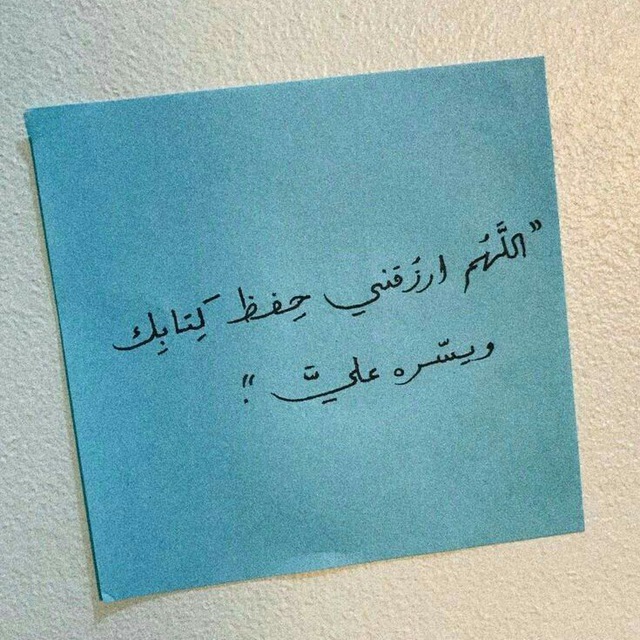 "اللَّهُم ارزُقني حِفظ كِتابِك
ويسّره عليَّ ."